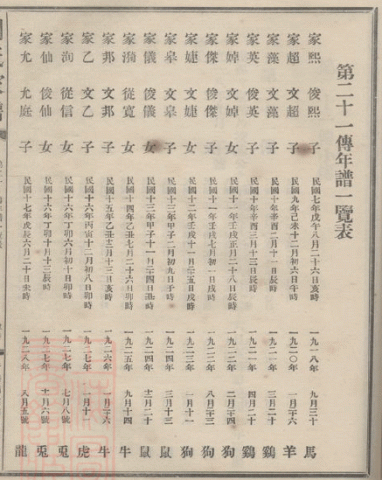 第二十一傳年譜一覽表
家熙 俊熙 子 民國七年戊午八月二十六日亥時 一九一八年 九月三十 馬
家超 文超 子 民國九年己未十二月初六日午時 一九二〇年 一月二十六 羊
家蕅 文蕅 子 民國十年辛酉二月十一日辰時 一九二一年 三月二十 鷄
家英 俊英 子 民國十年辛酉三月十三日辰時 一九二一年 四月二十 鷄
家婥 文婥 女 民國十一年壬戌正月二十八日辰時 一九二二年 二月二十四 狗
家傑 俊傑 子 民國十一年壬戌七月初一日戌時 一九二二年 八月二十三 狗
家婕 文婕 女 民國十一年壬戌十一月二十五日戌時 一九二三年 一月十一 狗
家皋 文皋 子 民國十三年甲子二月初九日子時 一九二四年 三月十三 鼠
家儀 俊儀 女 民國十三年甲子十一月二十四日丑時 一九二四年 十二月二十 鼠
家從寬 女 民國十四年乙丑七月二十六日卯時 一九二五年 九月十四 牛
家邦 文邦 子 民國十五年乙丑十二月十三日亥時 一九二六年 一月二十六 牛
家乙 文乙 子 民國十六年丙寅十二月初八日卯時 一九二七年 一月十 虎
家洵 從信 女 民國十六年丁卯六月初十日卯時 一九二七年 七月八號 兎
家仙 俊仙 女 民國十六年丁卯十月十三辰時 一九二七年 十一月六 兎
家尤 尤庭 子 民國十七年戊辰六月二十日丑時 一九二八年 八月五號 龍